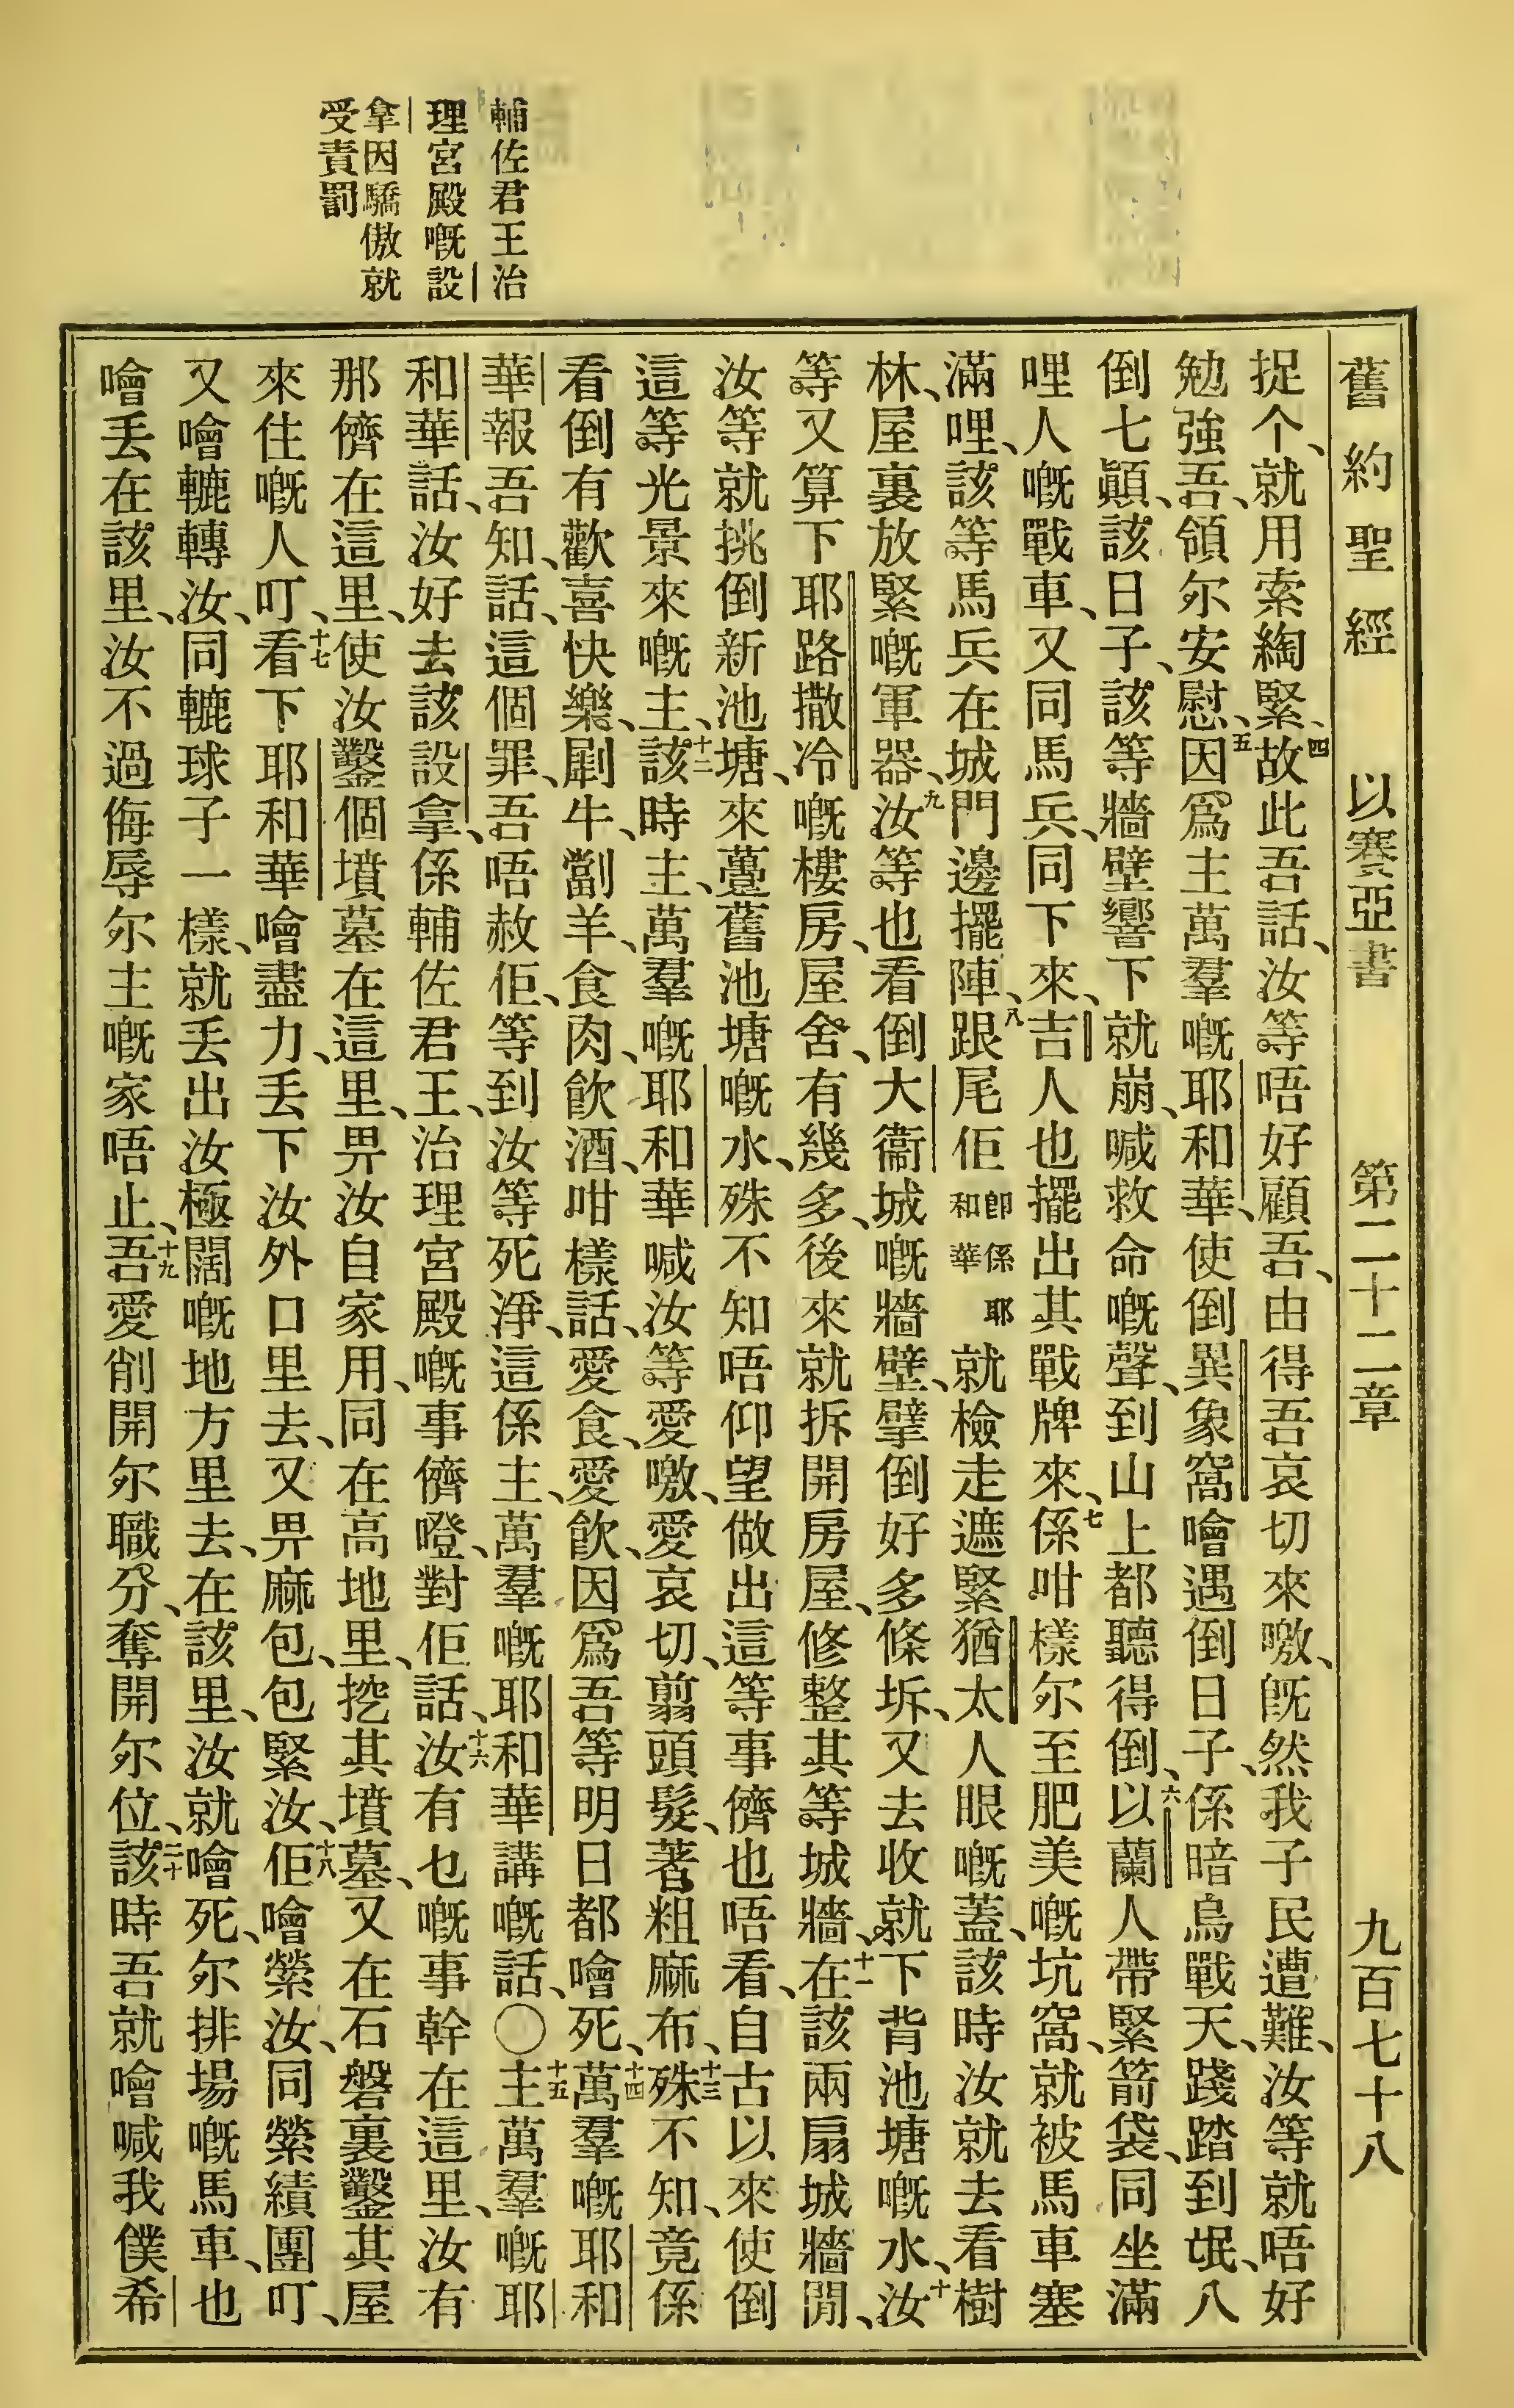 舊約聖經 以賽亞書 第二十二章 九百七十八
捉个、就用索綯緊、四故此吾話、汝等唔好顧吾、由得吾哀切來噭、旣然我子民遭難、汝等就唔好
勉強吾、領尔安慰、五因爲主萬羣嘅耶和華、使倒異象窩噲遇倒日子、係暗烏戰天、踐踏到氓、八
倒七顚、該日子、該等牆壁響下就崩、喊救命嘅聲、到山上都聽得倒、六以蘭人帶緊箭袋、同坐滿
哩人嘅戰車、又同馬兵、同下來、吉人也擺出其戰牌來、七係咁樣尔至肥美嘅坑窩、就被馬車塞
滿哩、該等馬兵在城門邊擺陣、八跟尾佢卽係耶和華就檢走遮緊猶太人眼嘅蓋、該時汝就去看樹
林、屋裏放緊嘅軍器、九汝等也看倒大衞城嘅牆壁、擘倒好多條坼、又去收就下背池塘嘅水、十汝
等又算下耶路撒冷嘅樓房、屋舍、有幾多、後來就拆開房屋、修整其等城牆、十一在該兩扇城牆閒、
汝等就挑倒新池塘、來薹舊池塘嘅水、殊不知唔仰望做出這等事儕、也唔看、自古以來使倒
這等光景來嘅主、十二該時主、萬羣嘅耶和華喊汝等愛噭、愛哀切、翦頭髮、著粗麻布、十三殊不知、竟係
看倒有歡喜快樂、劀牛、㓾羊、食肉、飮酒、咁樣話、愛食、愛飮、因爲吾等明日都噲死、十四萬羣嘅耶和
華報吾知、話、這個罪、吾唔赦佢、等到汝等死淨、這係主、萬羣嘅耶和華講嘅話、〇十五主萬羣嘅耶
和華話、汝好去該設拿、係輔佐君王、治理宮殿嘅事儕噔、對佢話、十六汝有乜嘅事幹在這里、汝有
那儕在這里、使汝鑿個墳墓在這里、畀汝自家用、同在高地里、挖其墳墓、又在石磐裏鑿其屋
來住嘅人叮、十七看下耶和華噲盡力、丟下汝外口里去、又畀麻包、包緊汝、十八佢噲縈汝、同縈績團叮、
又噲轆轉汝、同轆球子一樣、就丟出汝極闊嘅地方里去、在該里、汝就噲死、尔排場嘅馬車、也
噲丢在該里、汝不過侮辱尔主嘅家唔止、十九吾愛削開尔職分、奪開尔位、二十該時吾就噲喊我僕希
輔佐君王治
理宮殿嘅設
拿因驕傲就
受責罰